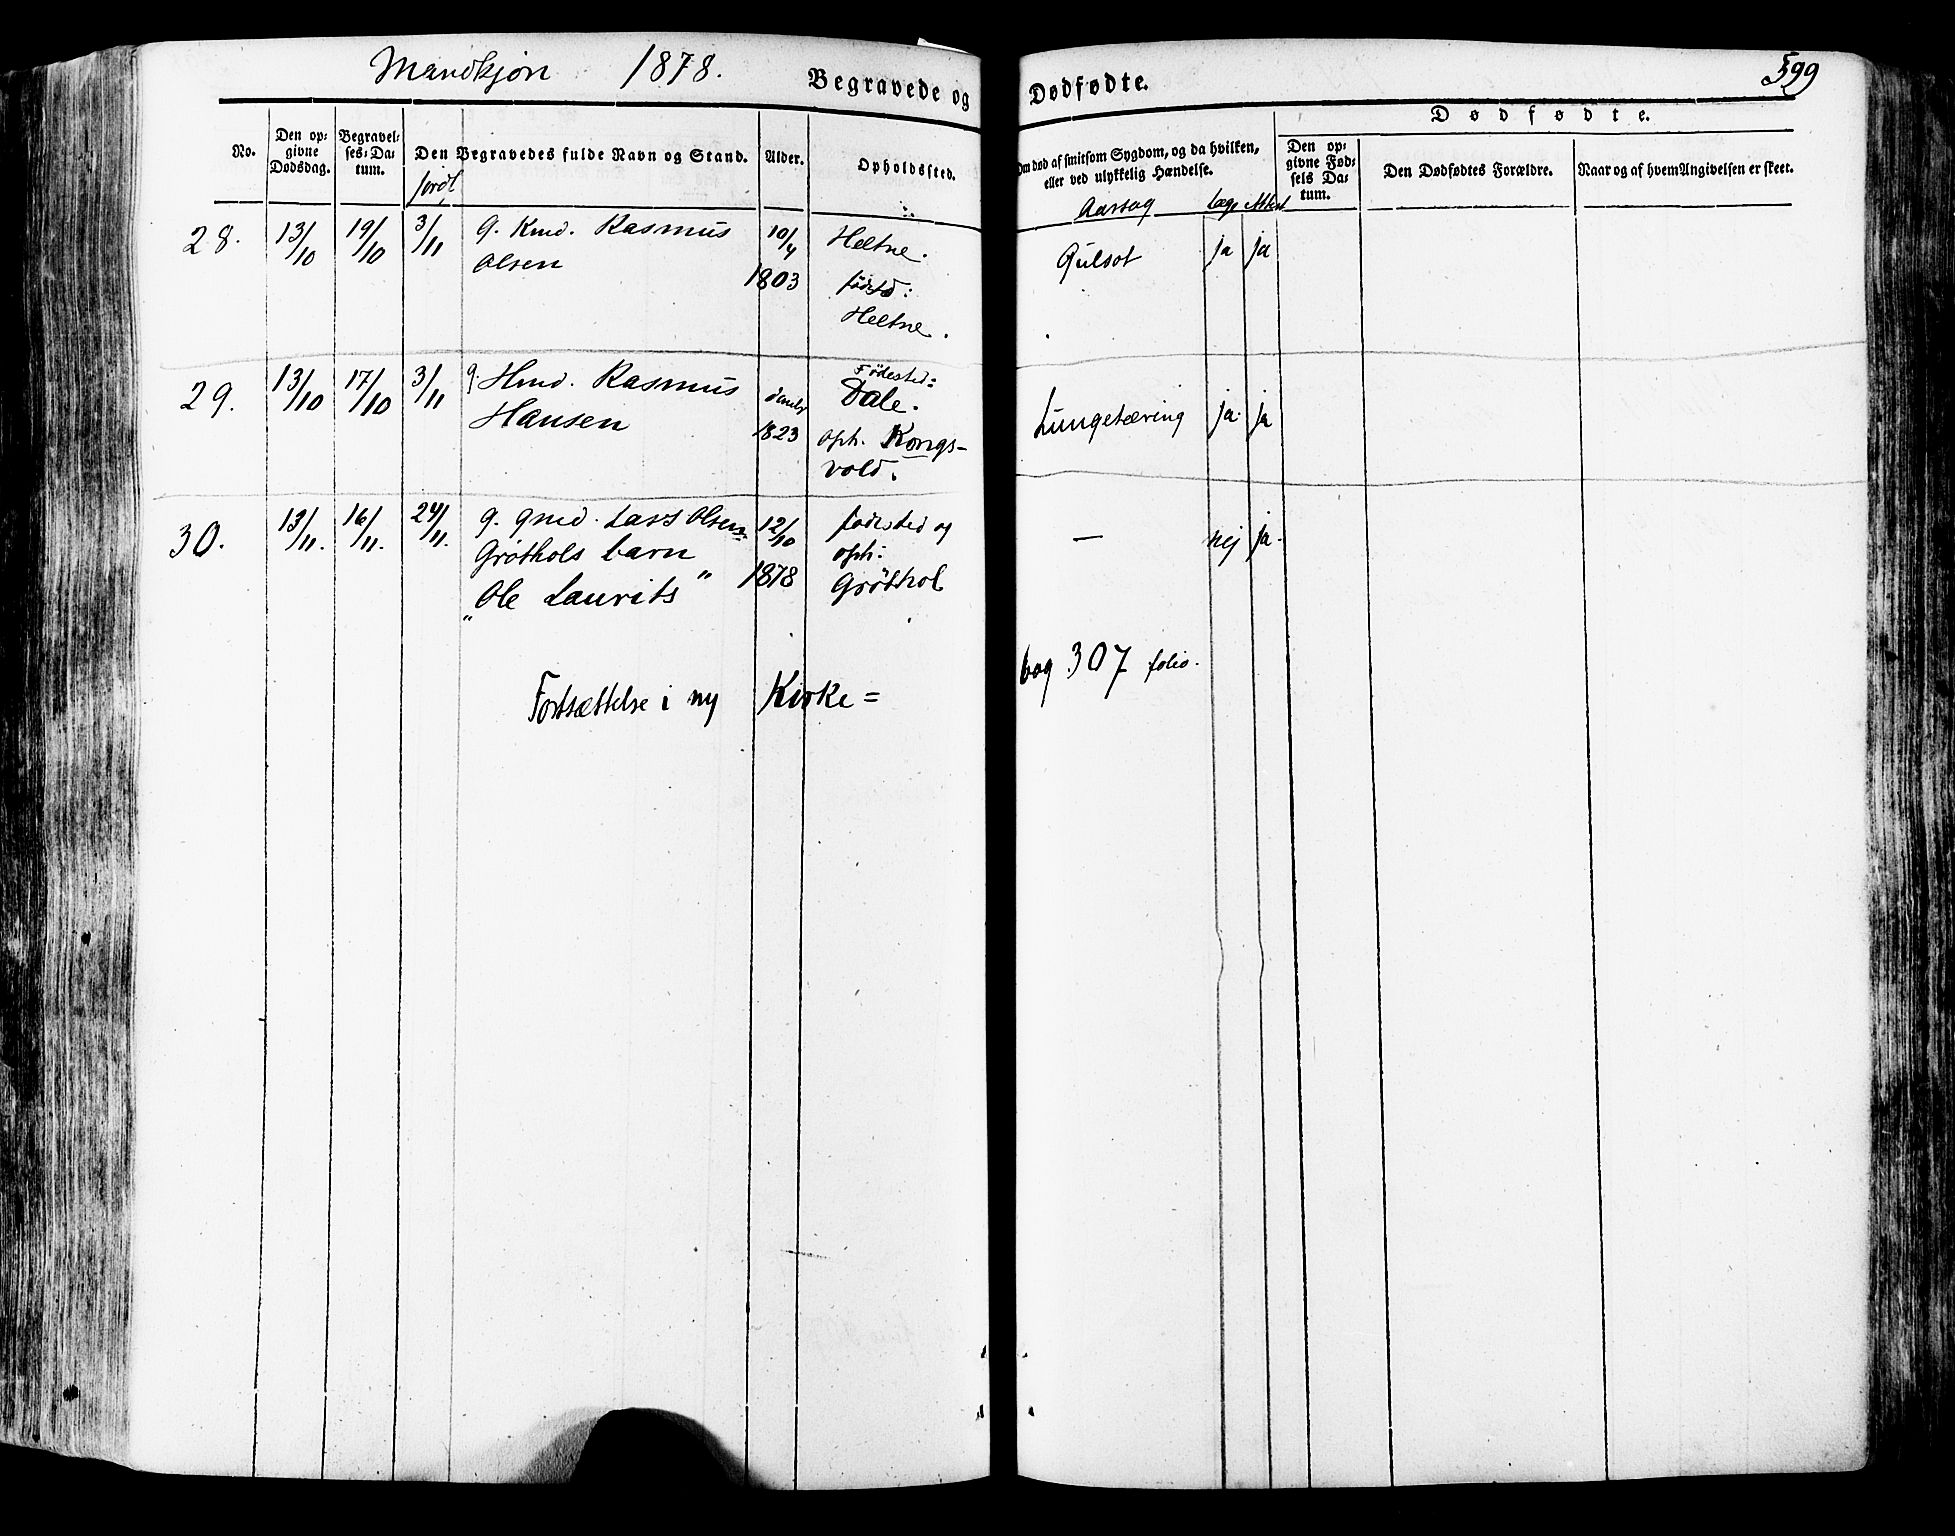 Mandkjøn 1878.
Begravede og Dødfødte.
599
No.
Den opgivne Dødsdag.
Begravelses-Datum.
Jordf.
Den Begravedes fulde Navn og Stand.
Alder.
Opholdssted.
Om død af smitsom Sygdom, og da hvilken, eller ved ulykkelig Hændelse.
Aarsag
Læge
Attest
Dødfødte.
Den opgivne Fødsels Datum.
Den Dødfødtes Forældre.
Naar og af hvem Angivelsen er skeet.
28. 13/10 19/10 3/11 g. Kmd. Rasmus 10/4 Heltne.
Olsen 1803 fødestd:
Heltne.
Gulsot ja ja
29. 13/10 17/10 3/11 g. Hmd. Rasmus Fødested:
Hansen 1823 Dale.
oph. Kongs-
vold.
Lungetæring ja. ja
30. 13/11. 16/11. 24/11. g. gmd. Lars Olsen 12/10 fødested og
Grøthols barn oph:
"Ole Laurits" 1878 Grøthol
— nej ja.
Fortsættelse i ny Kirke=
bog 307 folio.